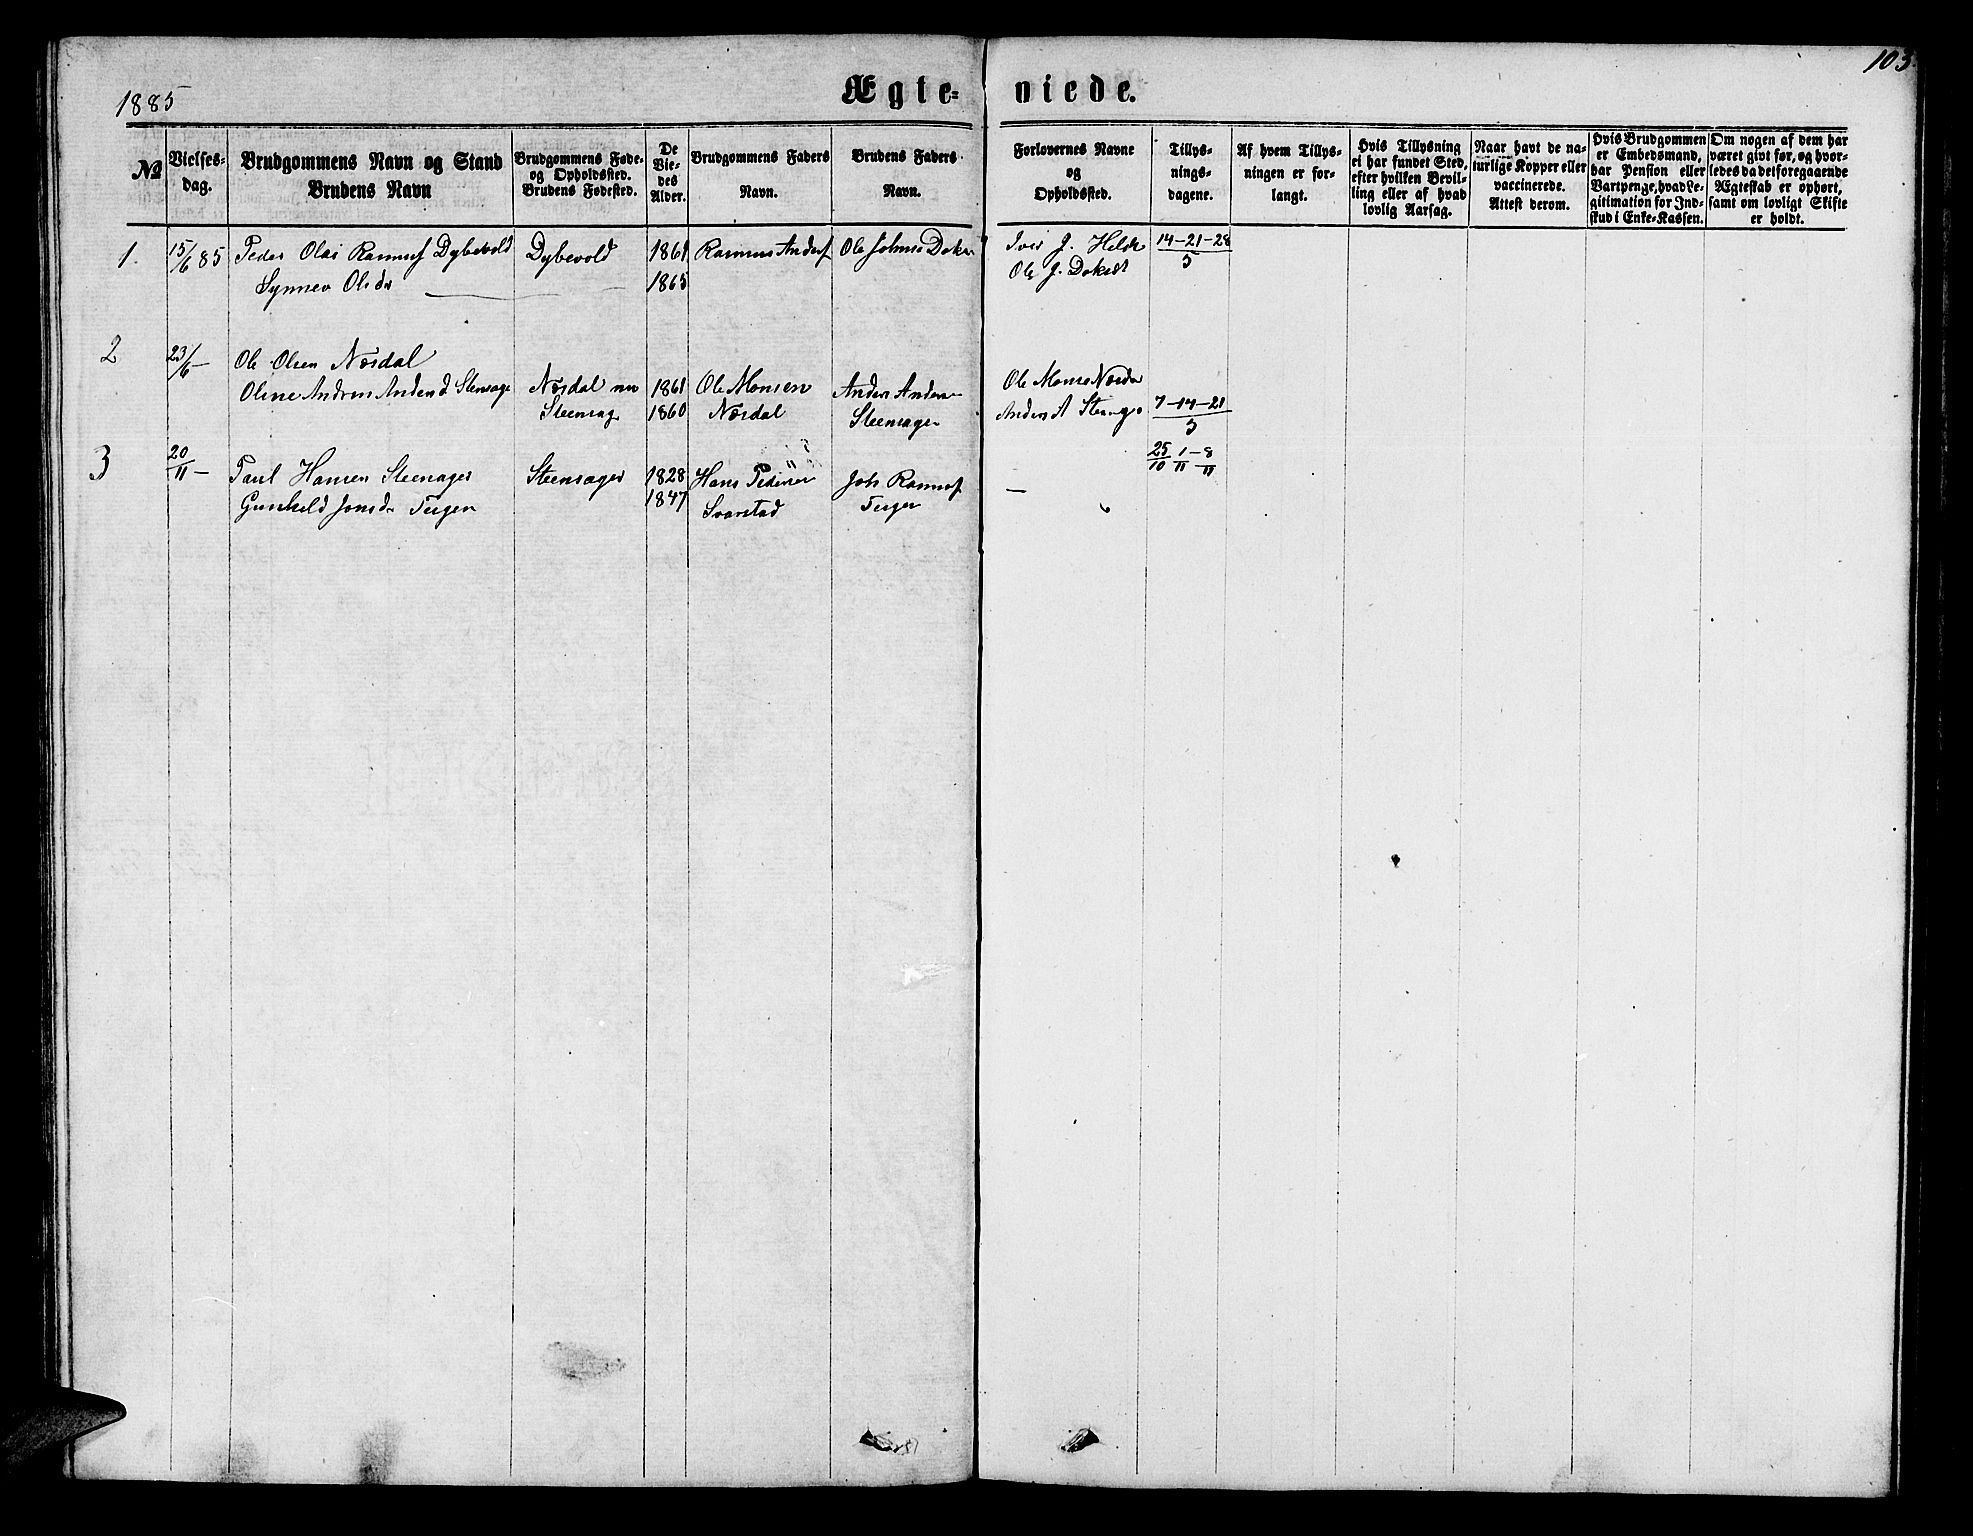 103
1885
Ægte- viede.
No
Vielses-
dag.
Brudgommens Navn og Stand
Brudens Navn
Brudgommens Føde-
og Opholdssted.
Brudens Fødested.
De
Vie-
des
Alder.
Brudgommens Faders
Navn.
Brudens Faders
Navn.
Forlovernes Navne
og
Opholdssted.
Tillys-
nings-
dagene.
Af hvem Tillys-
ningen er for-
langt.
Hvis Tillysning
ei har fundet Sted,
efter hvilken Bevil-
ling eller af hvad
lovlig Aarsag.
Naar havt de na-
turlige Kopper eller
vaccinerede.
Attest derom.
Hvis Brudgommen
er Embedsmand,
har Pension eller
Vartpenge, hvad Le-
gitimation for Ind-
skud i Enke-Kassen.
Om nogen af dem har
været givt før, og hvor-
ledes da det foregaaende
Ægteskab er ophørt,
samt om lovligt Skifte
er holdt.
1.
15/6 85
Peder Olai Rasmusf Dybevold
Synnev Olsdr
Dybevold
1861
1865
Rasmus Andersf
Ole Johnsen
Iver J. Helde
Ole J.
14-21-28
5
2
23/6 -
Ole Olsen Nosdal
Oline Andrine Andersd Stensage
Nosdal
Steensag
1861
1860
Ole Monsen
Nosdal
Anders Anders
Steensager
Ole Monse Nosda
Anders A
7-14-21
3
20/11 -
Paul Hansen Steensager
Gunhild Jonsdr
Steensager
1828
1847
Hans Pedersen
Svarstad
Rasmusf
-
25/10 1/11 - 8/11